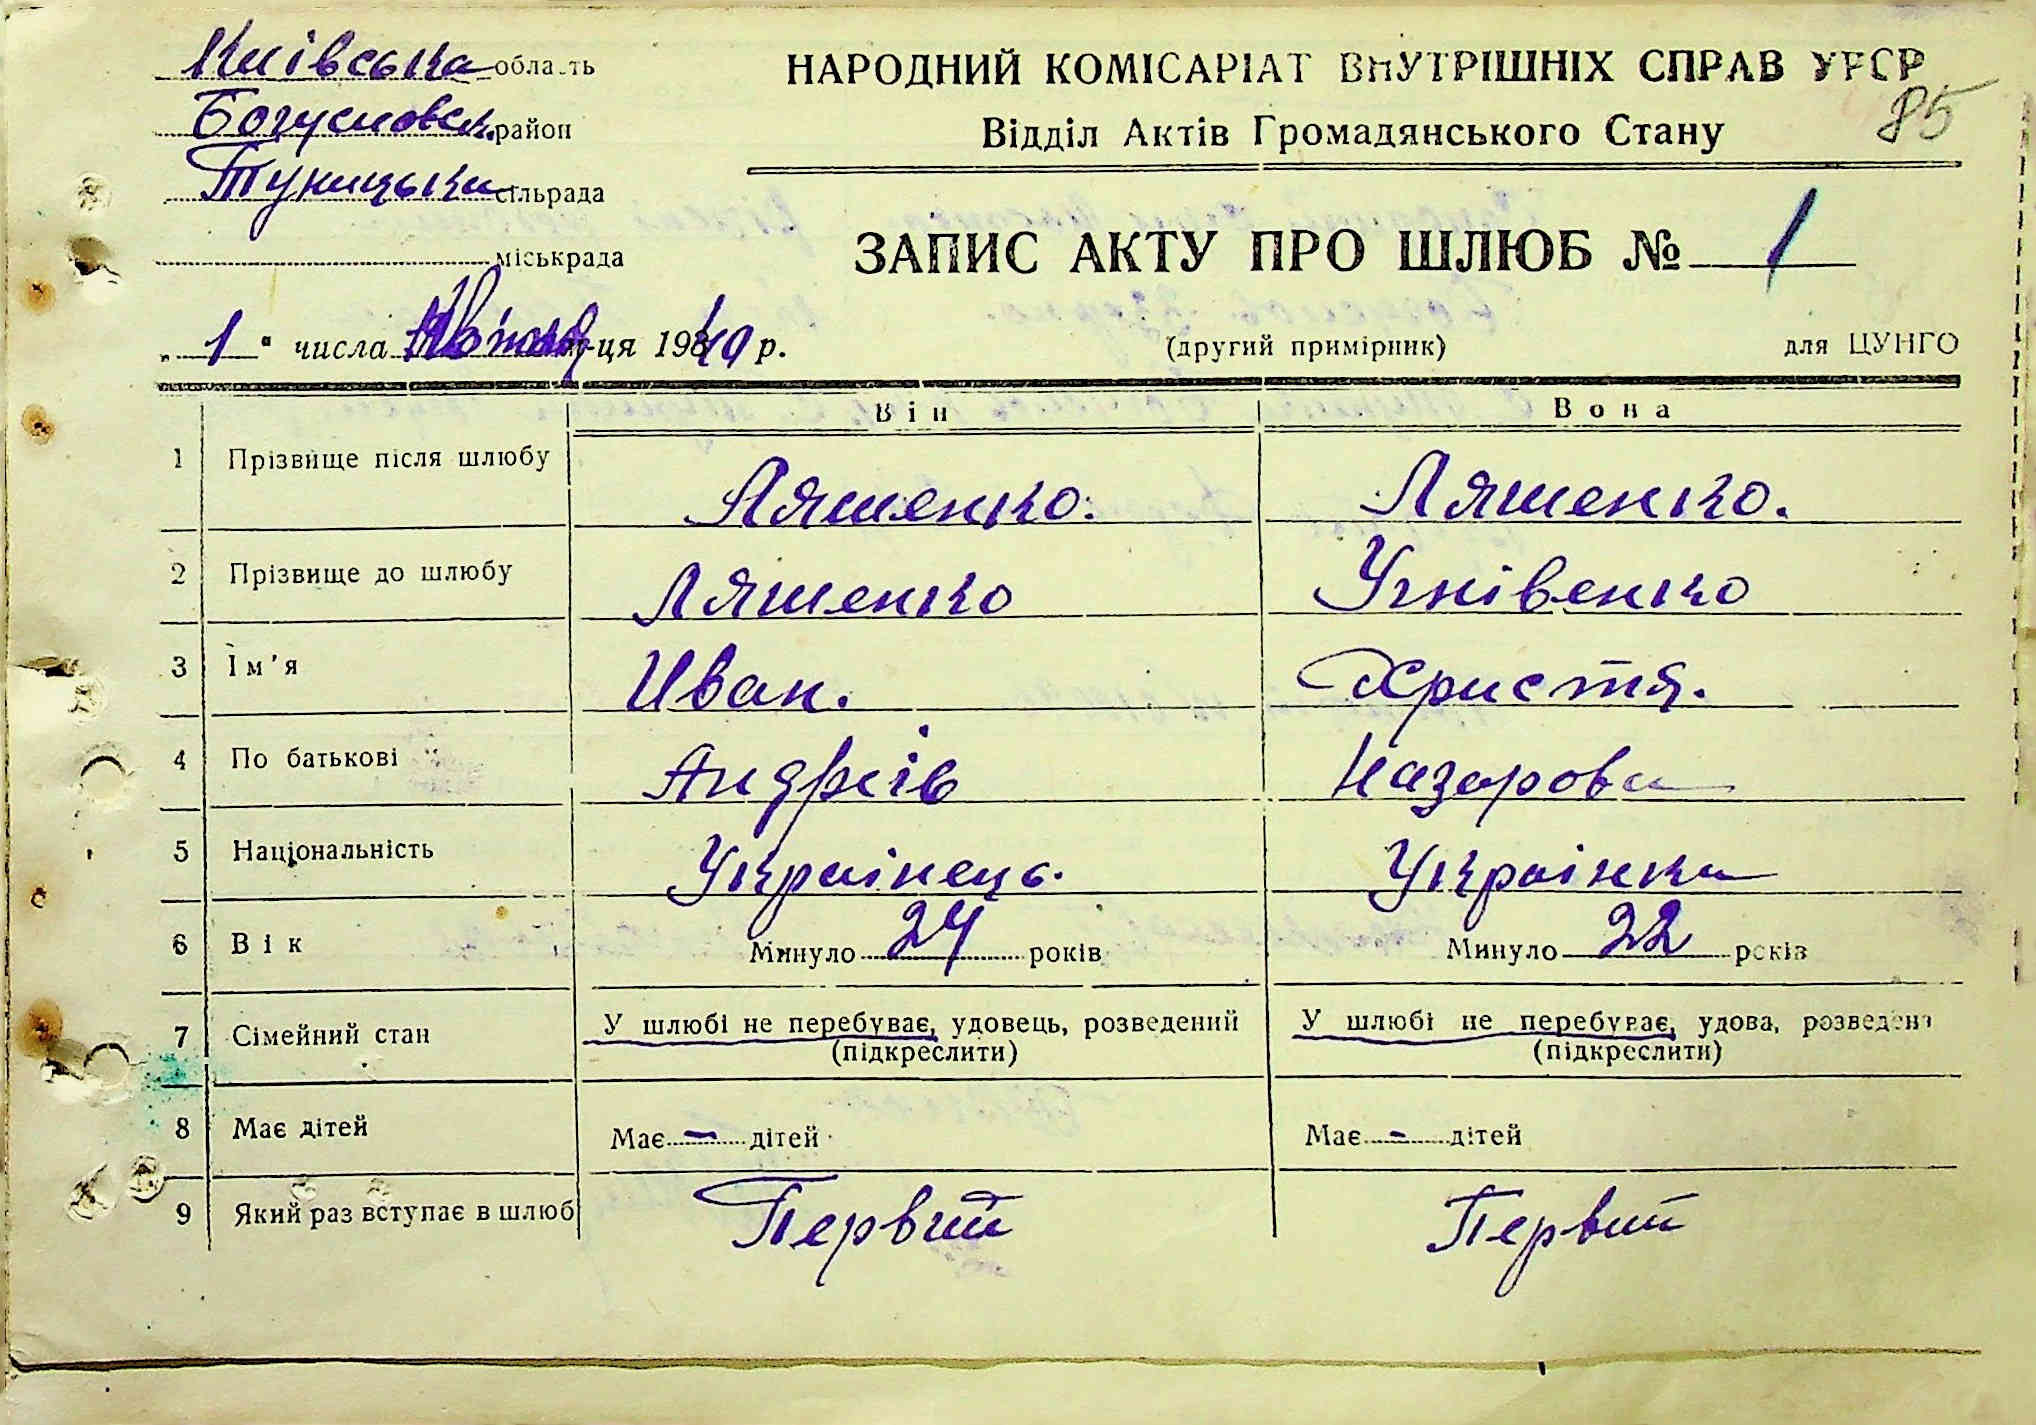 Київська область
Богуславськ. район
Туницька сільрада
міськрада
НАРОДНИЙ КОМІСАРІАТ ВНУТРІШНІХ СПРАВ УРСР
85
Відділ Актів Громадянського Стану
ЗАПИС АКТУ ПРО ШЛЮБ № 1
„ 1 " числа ця 1940 р.
(другий примірник)
для ЦУНГО
Він
Вона
1 Прізвище після шлюбу Ляшенко. Ляшенко.
2 Прізвище до шлюбу Ляшенко Угнівенко
3 Ім'я Иван. Христя.
4 По батькові Андреїв Назарова
5 Національність Украінець. Украінка
6 Вік Минуло 24 років Минуло 22 років
7 Сімейний стан У шлюбі не перебуває, удовець, розведений У шлюбі не перебуває, удова, розведена
(підкреслити) (підкреслити)
8 Має дітей Має – дітей Має – дітей
9 Який раз вступає в шлюб Первий Первий